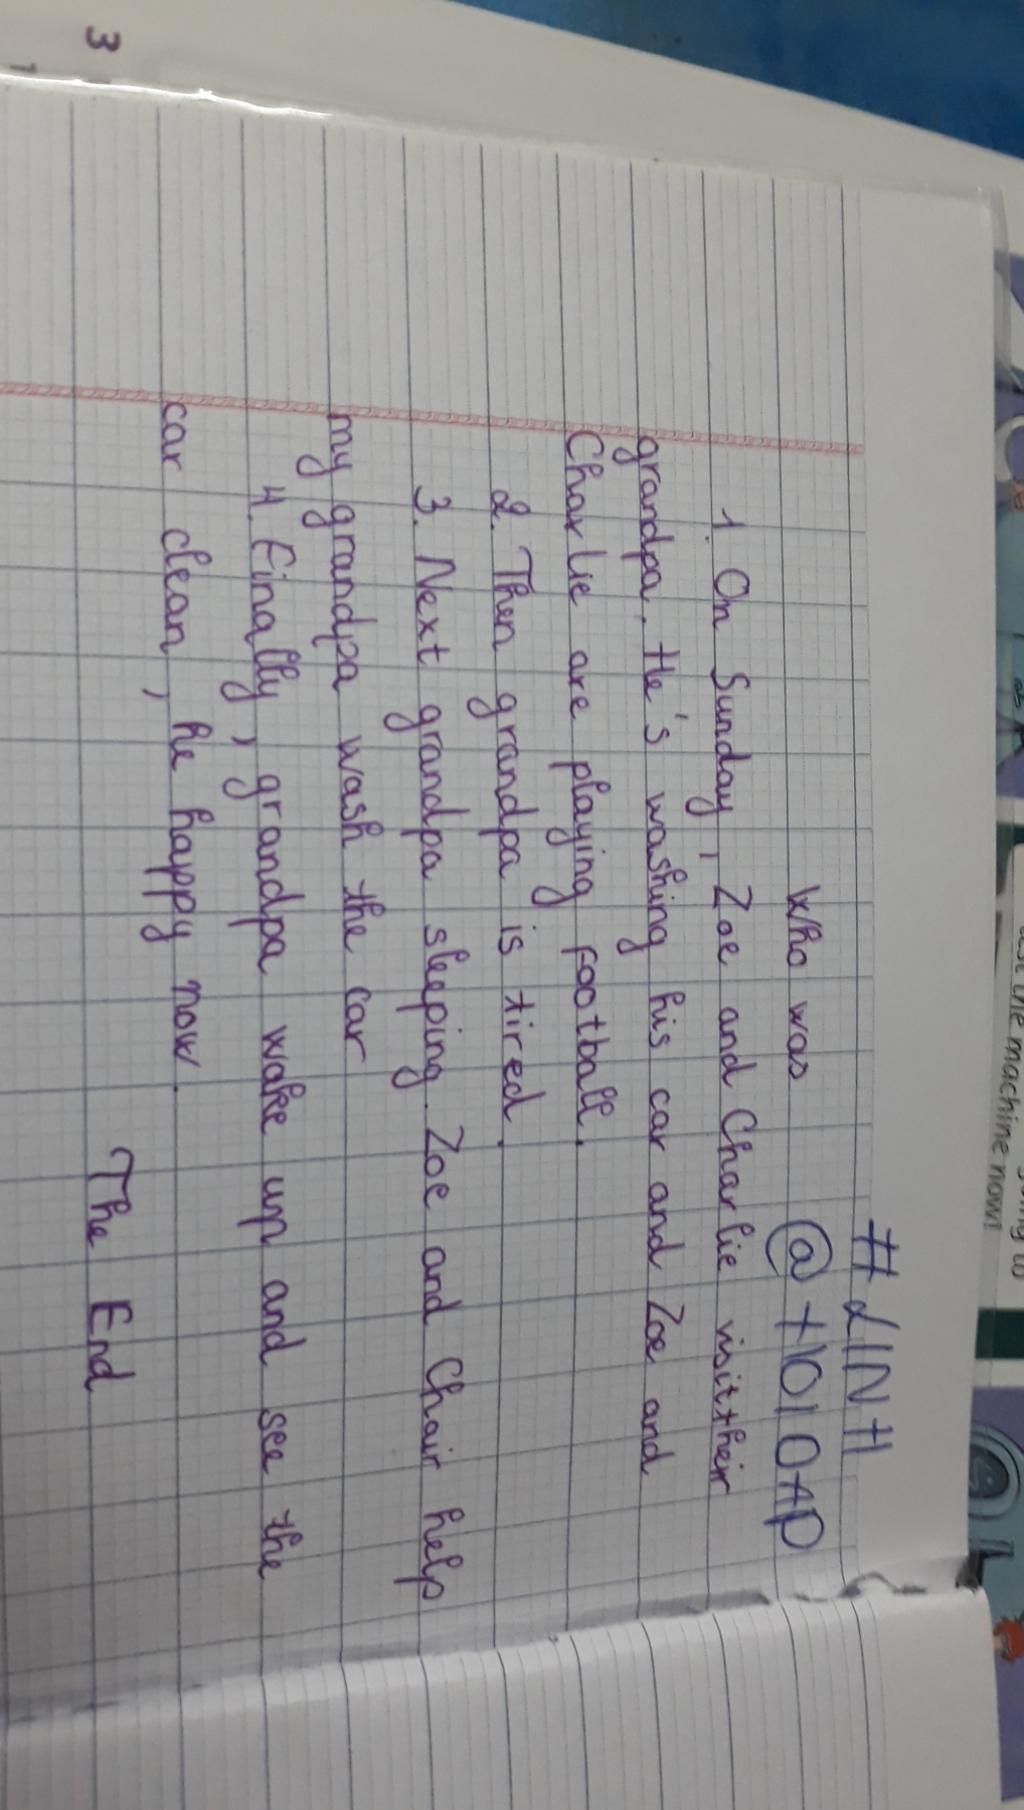 #LINH
@+10ІОАР
Who was
1. On Sunday, Zoe and Charlie visit their
grandpa, He's washing his car and Zoe and
Charlie are playing football.
2. Then grandpa is tired.
3. Next grandpa sleeping. Zoe and Chair help
my grandpa wash the car
4. Finally, grandpa wake up and see the
car clean, he happy now.
The End
3
the machine now!